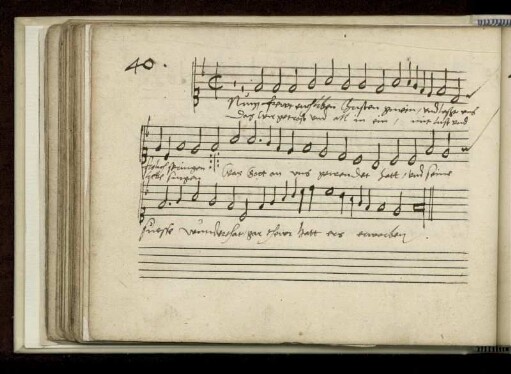 40.
Nun frewt euch lieben Christen gemein, und lasst uns
das wir getrost und all in ein, mit lust und
frölich springen
liebe singen
was Gott an uns gewendet hatt, und seine
süesse wunderthat gar theur hatt ers erworben.